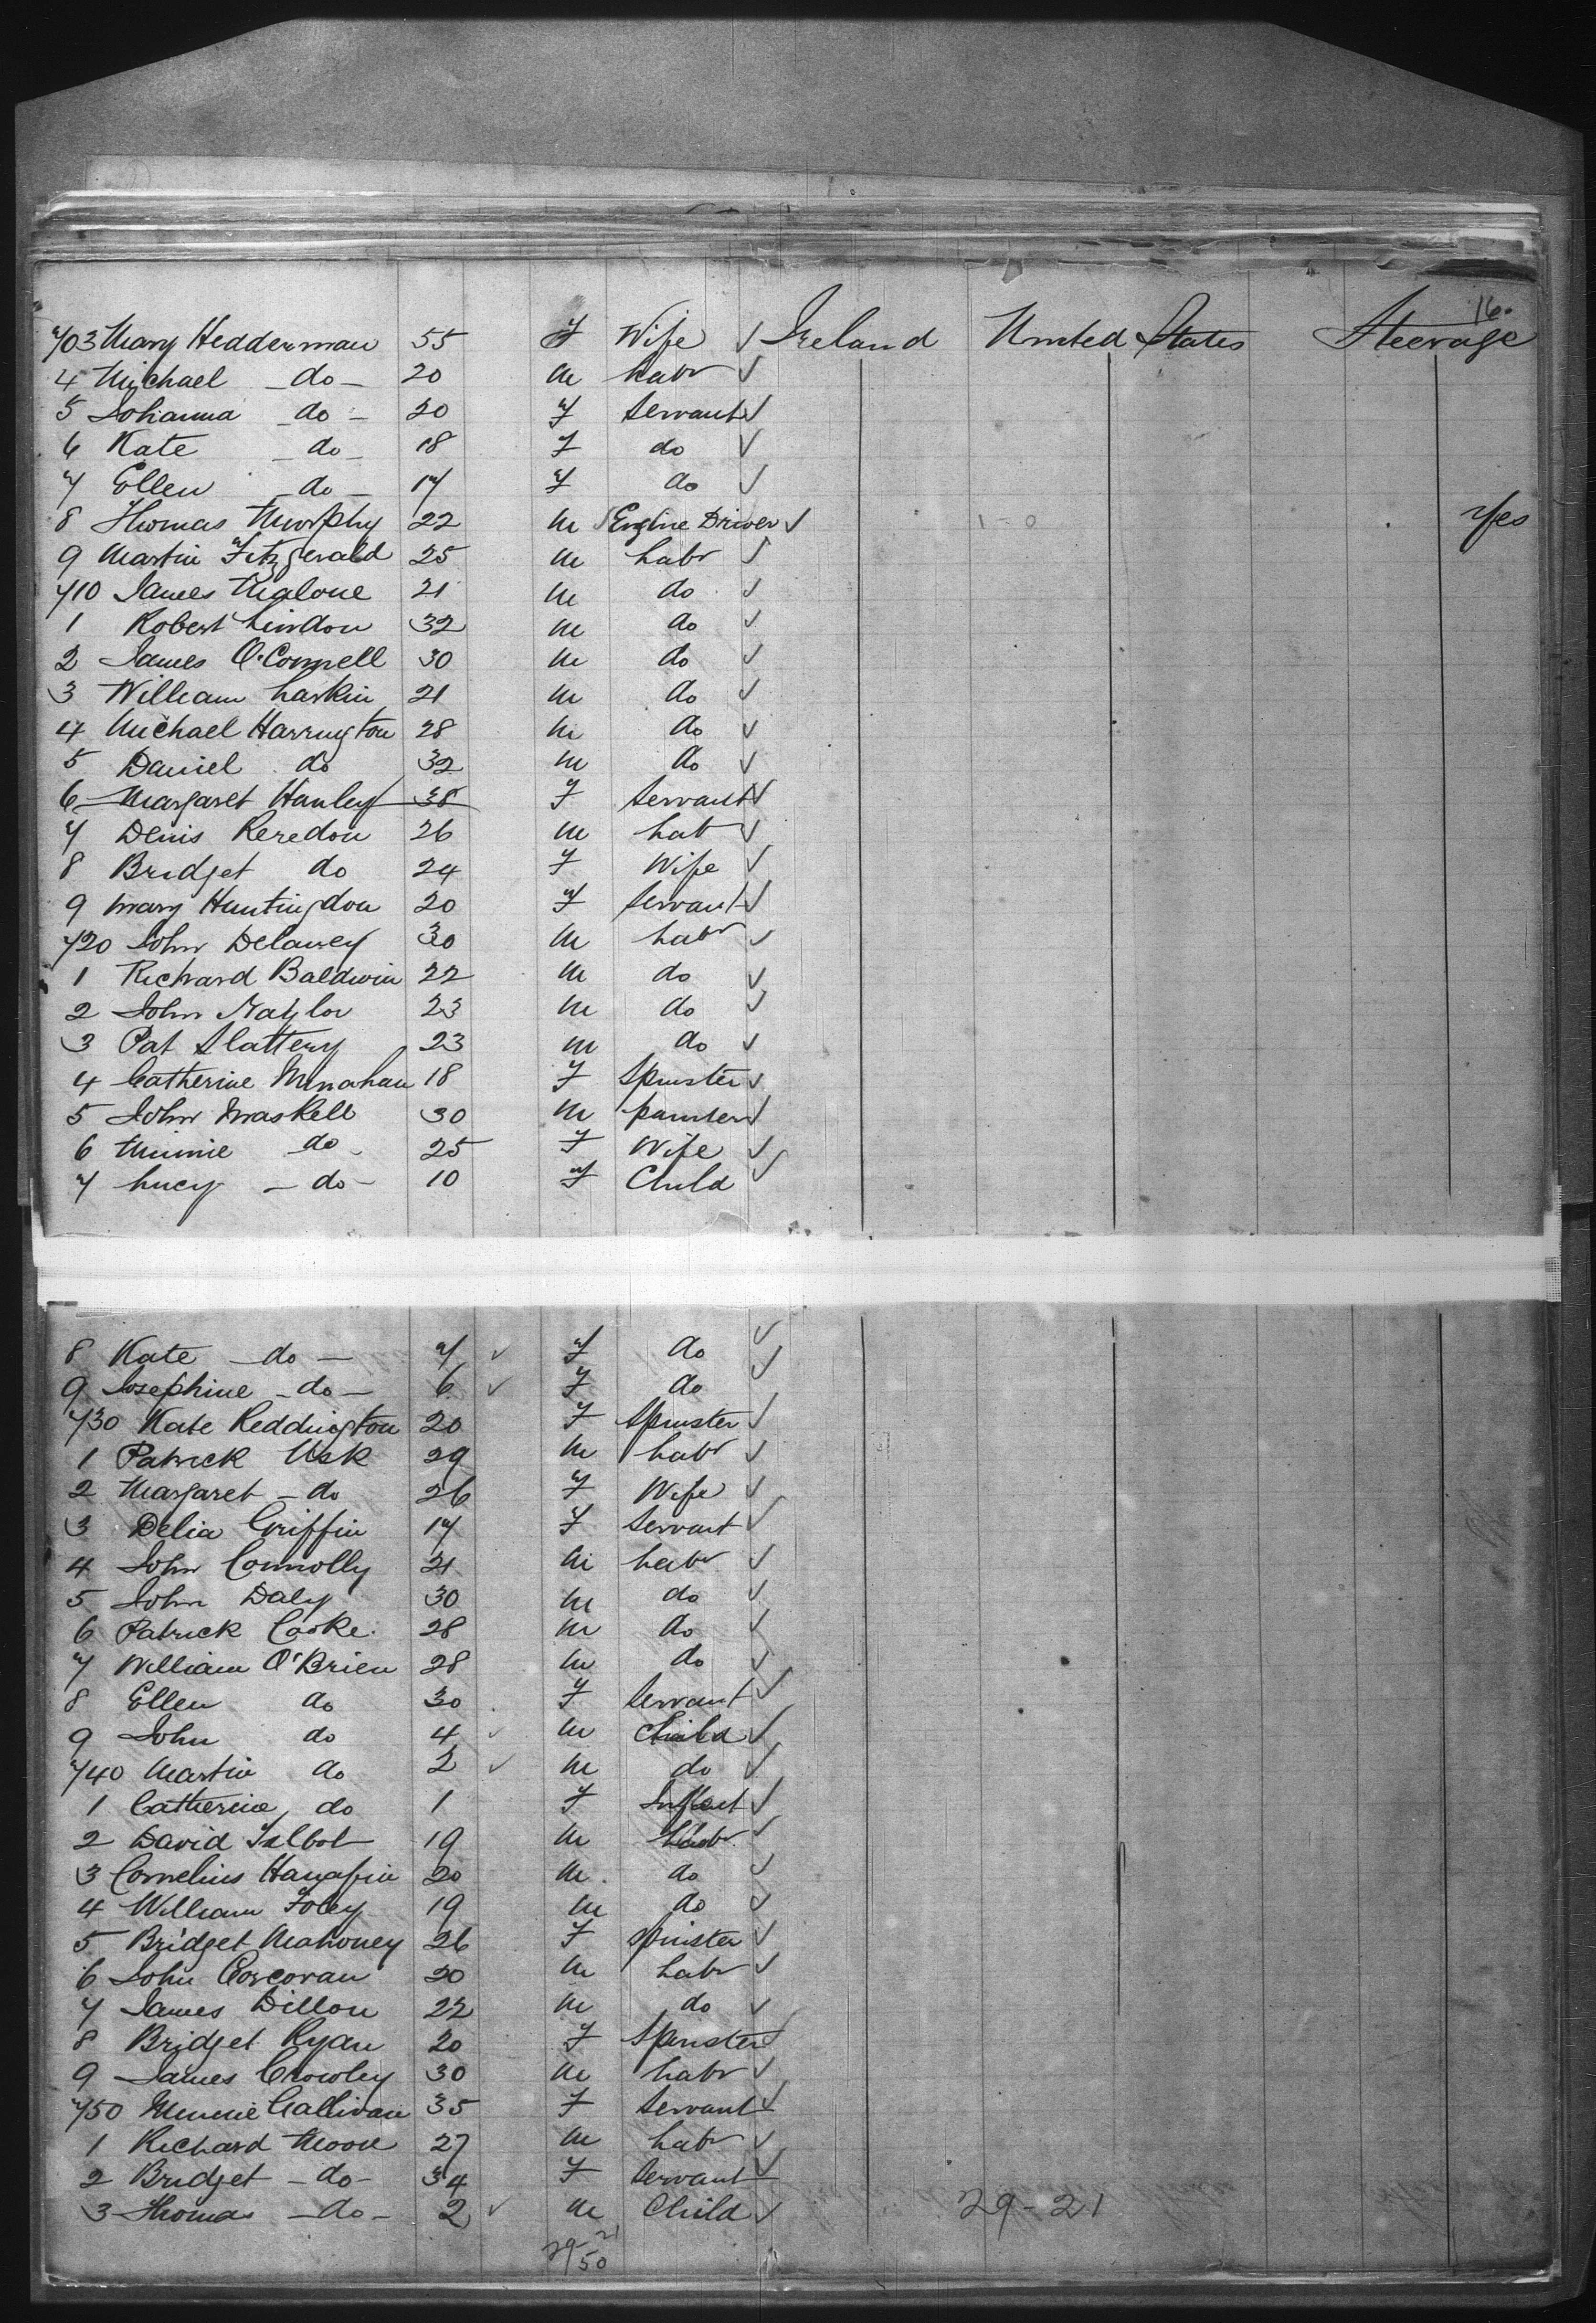 16.
703 Mary Hedderman 55 F Wife ✓ Ireland United States Steerage
4 Michael - do - 20 M Labr ✓
5 Johanna - do - 20 F Servant ✓
6 Kate - do - 18 F do ✓
7 Ellen - do - 17 F do ✓
8 Thomas Murphy 22 M Engine Driver ✓ 1 - 0 Yes
9 Martin Fitzgerald 25 M Labr ✓
710 James Malone 21 M do ✓
1 Robert Lindon 32 M do ✓
2 James O'Connell 30 M do ✓
3 William Larkin 21 M do ✓
4 Michael Harrington 28 M do ✓
5 Daniel do 32 M do ✓
6 Margaret Hanley 38 F Servant ✓
7 Denis Reredon 26 M Labr ✓
8 Bridget do 24 F Wife ✓
9 Mary Huntingdon 20 F Servant ✓
720 John Delaney 30 M Labr ✓
1 Richard Baldwin 22 M do ✓
2 John Naylor 23 M do ✓
3 Pat Slattery 23 M do ✓
4 Catherine Minahan 18 F Spinster ✓
5 John Maskell 30 M painter ✓
6 Minnie do 25 F Wife ✓
7 Lucy - do - 10 F Child ✓
8 Kate - do - 7 ✓ F do ✓
9 Josephine - do - 6 ✓ F do ✓
730 Kate Reddington 20 F Spinster ✓
1 Patrick Usk 29 M Labr ✓
2 Margaret - do 26 F Wife ✓
3 Delia Griffin 17 F Servant ✓
4 John Connolly 21 M Labr ✓
5 John Daly 30 M do ✓
6 Patrick Cooke 28 M do ✓
7 William O'Brien 28 M do ✓
8 Ellen do 30 F Servant ✓
9 John do 4 ✓ M Child ✓
740 Martin do 2 ✓ M do ✓
1 Catherine do 1 F Infant ✓
2 David Talbot 19 M Labr ✓
3 Cornelius Hanafin 20 M do ✓
4 William Foley 19 M do ✓
5 Bridget Mahoney 26 F Spinster ✓
6 John Corcoran 20 M Labr ✓
7 James Dillon 22 M do ✓
8 Bridget Ryan 20 F Spinster ✓
9 James Crowley 30 M Labr ✓
750 Minnie Gallivan 35 F Servant ✓
1 Richard Moore 27 M Labr ✓
2 Bridget - do - 34 F Servant ✓
3 Thomas - do - 2 ✓ M Child ✓ 29-21
29 21
50